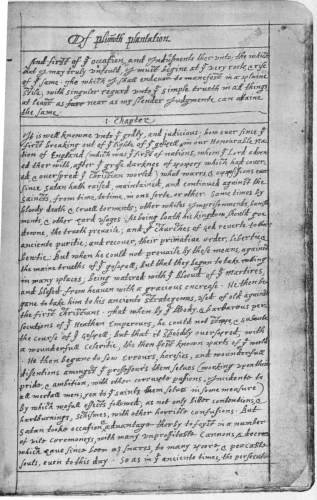 Of plimoth plantation
And first of yᵉ occasion, and Indusments ther unto; the which
that I may truly unfould, I must begine at yᵉ very roote & rise
of yᵉ same. The which I shall endevor to manefest in a plaine
stile; with singuler regard unto yᵉ simple trueth in all things,
at least as near as my slender Judgmente can attaine
the same.
1. Chapter
It is well knowne unto yᵉ godly, and judicious; how ever since yᵉ
first breaking out of yᵉ lighte of yᵉ gospell, in our Honourable Na-
tion of England (which was yᵉ first of nations, whom yᵉ Lord adorn-
ed ther with, after yᵉ grosse darknes of popery which had cover-
ed, & overspred yᵉ christian worled) what warrs, & oppossissions ever
since satan hath raised, maintained, and continued against the
saincts, from time, to time, in one sorte, or other. Some times by
bloody death & cruell torments; other whiles imprisonments, banish-
ments, & other hard usages. As being loath his kingdom should goe
downe, the trueth prevaile; and yᵉ Churches of god reverte to their
anciente puritie; and recover, their primative order, libertie, &
bewtie. But when he could not prevaile by these means, against
the maine trueths of yᵉ gospell; but that they began to take rooting
in many places, being watered with yᵉ blooud of yᵉ martires,
and blessed from heaven with a gracious encrease. He then be-
gane to take him to his anciente strategemes, used of old against
the first christians. That when by yᵉ bloody, & barbarous per-
secutions of yᵉ Heathen Emperours, he could not stoppe, & subuerte
the course of yᵉ gospell; but that it speedily overspred, with
a wounderfull celeritie, the then best known parts of yᵉ world.
He then began to sow errours, heresies, and wounderfull
disentions amongst yᵉ proffessors them selves (working upon their
pride, & ambition, with other corrupte passions, Incidente to
all mortall men; yea to yᵉ saints them selves in some measure)
by which wofull effects followed; as not only bitter contentions, &
hartburnings, schismes, with other horrible confusions. But
satan tooke occasion & advantage therby to foyst in a number
of vile ceremoneys, with many unproffitable Cannons, & decrees
which have since been as snares, to many poore, & peaceable
souls, even to this day. So as in yᵉ anciente times, the persecutio-